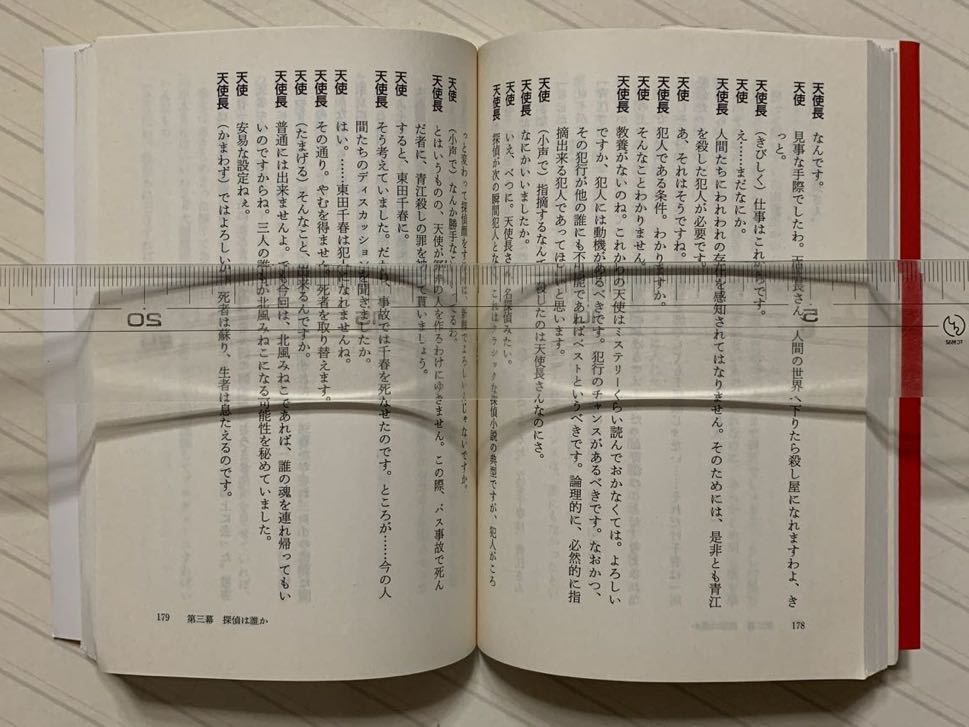 天使長 なんです。
天使 見事な手際でしたわ。天使長さん、人間の世界へ下りたら殺し屋になれますわよ、き
っと。
天使長 (きびしく)仕事はこれからです。
天使 え……まだなにか。
天使長 人間たちにわれわれの存在を感知されてはなりません。そのためには、是非とも青江
を殺した犯人が必要です。
天使 あ、それはそうですね。
天使長 犯人である条件。わかりますか。
天使 そんなことわかりません。
天使長 教養がないのね。これからの天使はミステリーくらい読んでおかなくては。よろしい
ですか、犯人には動機があるべきです。犯行のチャンスがあるべきです。なおかつ、
その犯行が他の誰にも不可能であればベストというべきです。論理的に、必然的に指
摘出来る犯人であってほしいと思います。
天使 (小声で)指摘するなんて、殺したのは天使長さんなのにさ。
天使長 なにかいいましたか。
天使 いえ、べつに。天使長さん、名探偵みたい。
天使長 探偵が次の瞬間犯人となる。これはクラシックな探偵小説の典型ですが、犯人がころ
178
っと変わって探偵顔をするのは、新鮮でよろしいんじゃないですか。
天使 (小声で)なんか勝手なこと
天使長 とはいうものの、天使が架空の人を作るわけにゆきません。この際、バス事故で死ん
だ者に、青江殺しの罪を被って貰いましょう。
天使 すると、東田千春に。
天使長 そう考えていました。だから、事故では千春を死なせたのです。ところが……今の人
間たちのディスカッションを聞きましたか。
天使 はい。……東田千春は犯人になれませんね。
天使長 その通り。やむを得ません、死者を取り替えます。
天使 (たまげる)そんなこと、出来るんですか。
天使長 普通には出来ませんよ。でも今回は、北風みねこであれば、誰の魂を連れ帰ってもい
いのですからね。三人の誰もが北風みねこになる可能性を秘めていました。
天使 安易な設定ねぇ。
天使長 (かまわず)ではよろしいか。死者は蘇り、生者は息たえるのです。
179 第三幕 探偵は誰か
50